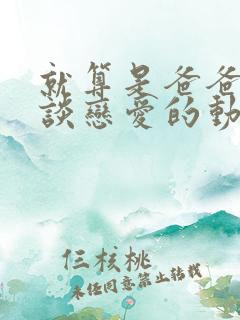 就算是爸爸
談戀愛的動
仨核桃
未經同意禁止轉載